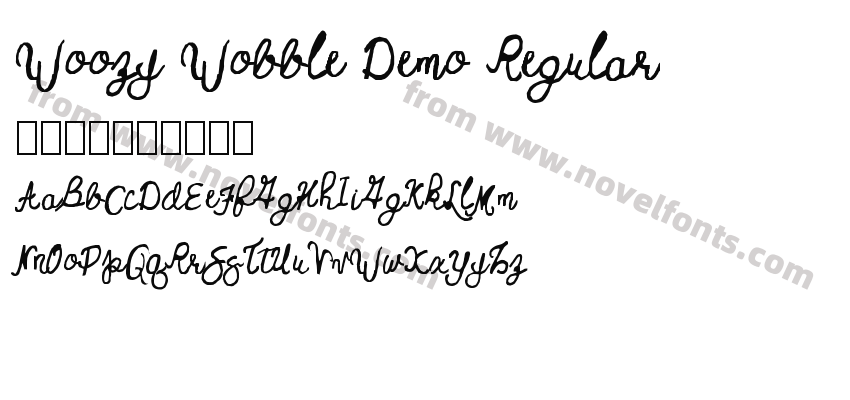 Woozy Wobble Demo Regular
AaBbCcDdEeFfGgHhIiGgKkLlMm
NnOoPpQqRrSsTtUuVvWwXxYyZz
from www.novelfonts.com
from www.novelfonts.com